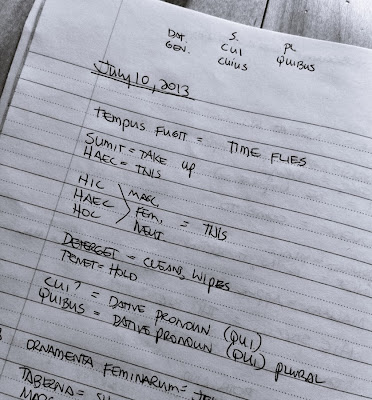 S. PL
DAT. CUI QUIBUS
GEN. CUIUS
JULY 10, 2013
TEMPUS FUGIT = TIME FLIES
SUMIT = TAKE UP
HAEC = THIS
HIC MASC.
HAEC FEM. = THIS
HOC NEUT
DETERGET = CLEANS, WIPES
TENET = HOLD
CUI? = DATIVE PRONOUN (QUI)
QUIBUS = DATIVE PRONOUN (QUI) PLURAL
ORNAMENTA FEMINARUM =
TABERNA =